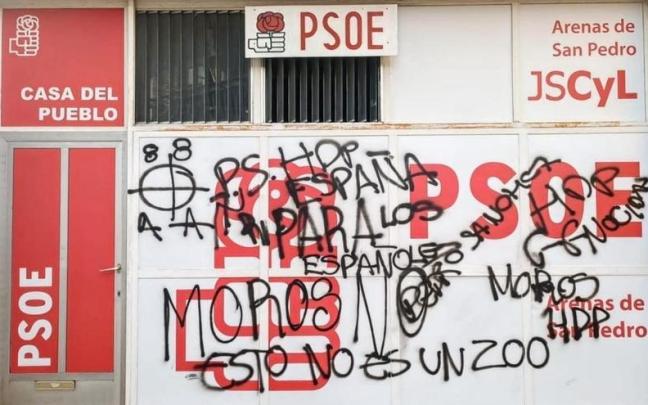 CASA DEL
PUEBLO
PSOE
Arenas de
San Pedro
JSCyL
PSOE
8 8
P.S. HDP
ESPAÑA
PARA LOS
ESPAÑOLES
MOROS NO
ESTO NO ES UN ZOO
PSOE
HDP
MOROS
HDP
Arenas de
San Pedro